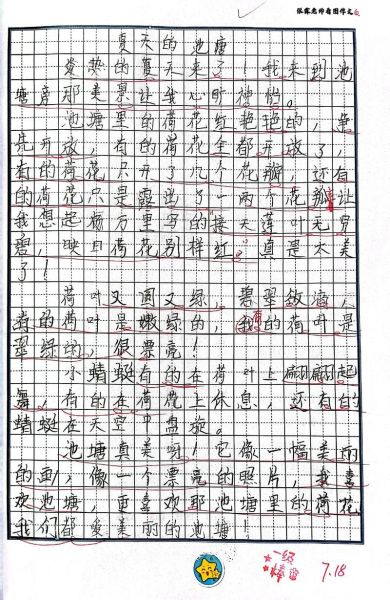 张霖老师看图作文
夏天的池塘
炎热的夏天来了！我来到池
塘旁那美景让我心旷神怡。
池塘里的荷花红艳艳的，争
先开放，有的荷花全都开放了，
有的荷花只开了几个花瓣，还有
的荷花只是露出了一两个花瓣让
我想起杨万里写的"接天莲叶无穷
碧，映日荷花别样红。"真是太美
了！
荷叶又圆又绿，碧翠欲滴，
有的荷叶是嫩绿的，有的荷叶是
翠绿的，很漂亮！
小蜻蜓有的在荷叶上翩翩起
舞，有的在荷花上休息，还有的
蜻蜓在天空中盘旋。
池塘真美呀！它像一幅美丽
的画，像一个漂亮的照片，我喜
欢池塘，更喜欢那池塘里的荷花
我们都爱美丽的池塘！
一级
棒
7.18